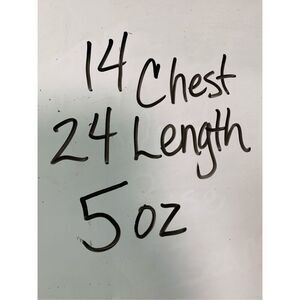 14 Chest
24 Length
5 oz